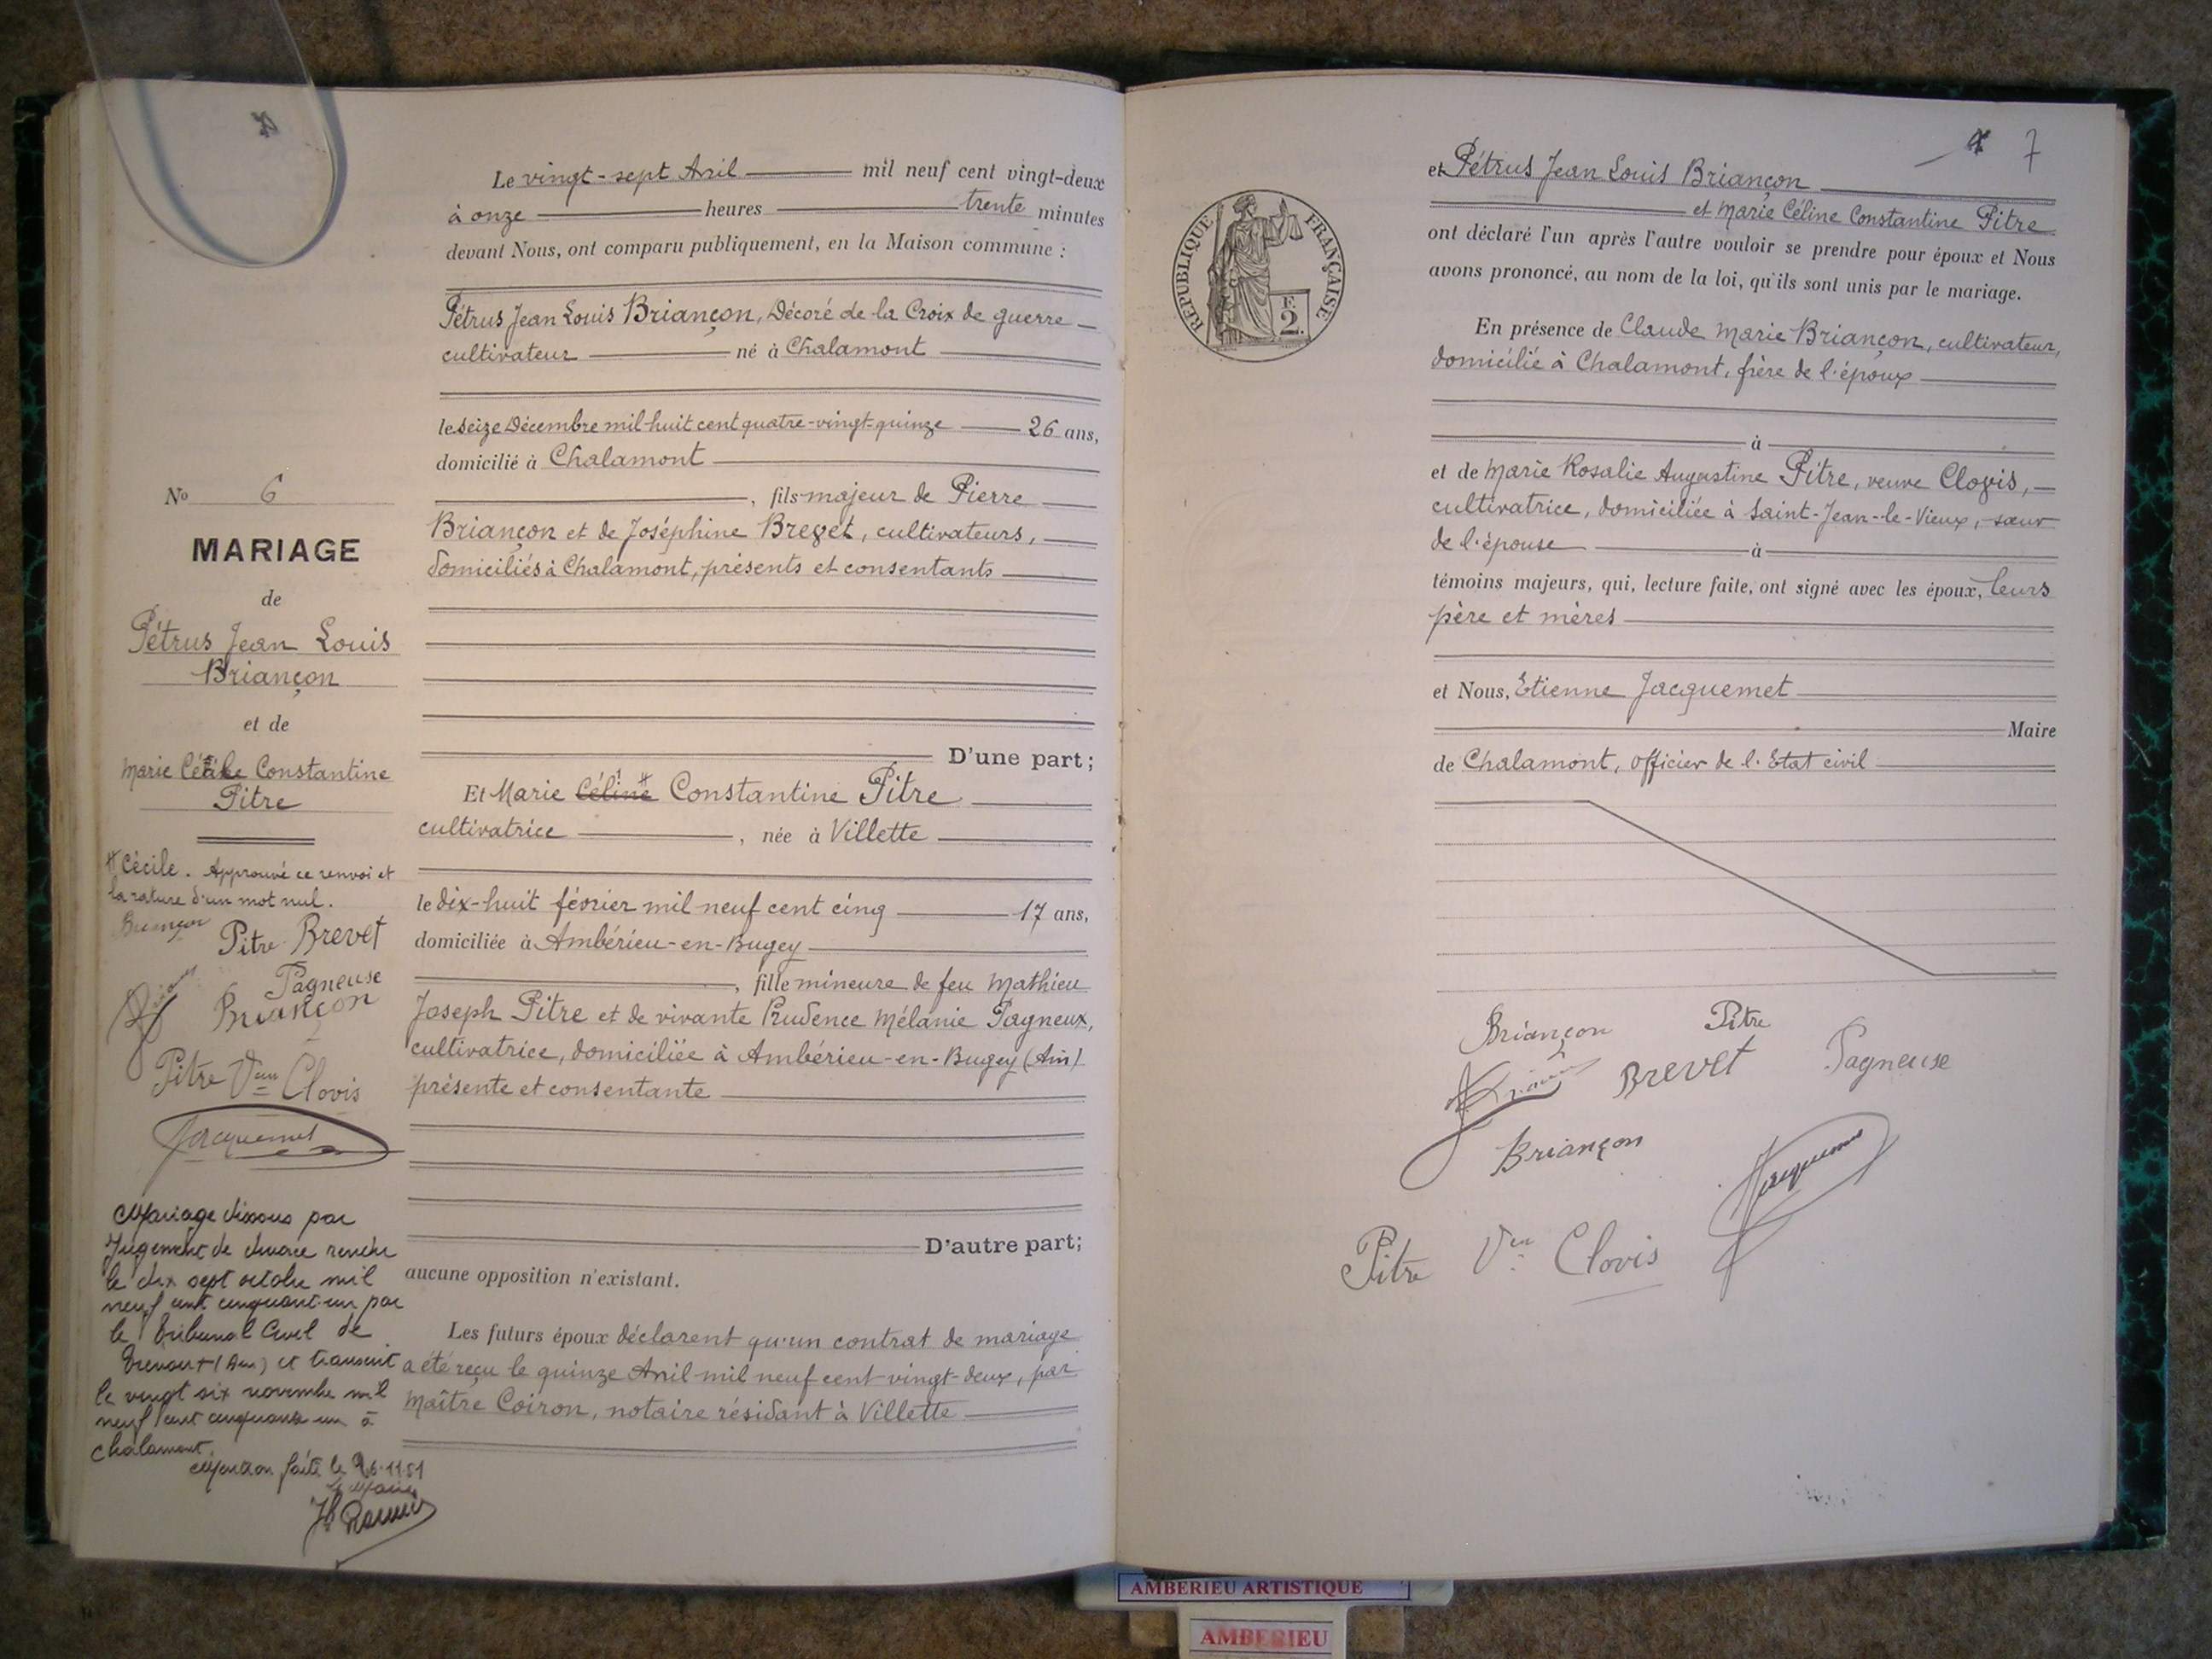 Le vingt-sept Avril mil neuf cent vingt-deux
à onze heures trente minutes
devant Nous, ont comparu publiquement, en la Maison commune :
Pétrus Jean Louis Briançon, Décoré de la Croix de guerre
cultivateur né à Chalamont
le seize Décembre mil huit cent quatre-vingt-quinze 26 ans,
domicilié à Chalamont
, fils majeur de Pierre
Briançon et de Joséphine Brevet, cultivateurs,
domiciliés à Chalamont, présents et consentants
D'une part ;
Et Marie Céline # Constantine Pitre
cultivatrice , née à Villette
le dix-huit février mil neuf cent cinq 17 ans,
domiciliée à Ambérieu-en-Bugey
, fille mineure de feu Mathieu
Joseph Pitre et de vivante Prudence Mélanie Pagneux,
cultivatrice, domiciliée à Ambérieu-en-Bugey (Ain)
présente et consentante
D'autre part ;
aucune opposition n'existant.
Les futurs époux déclarent qu'un contrat de mariage
a été reçu le quinze Avril mil neuf cent vingt-deux, par
Maître Coiron, notaire résidant à Villette
No 6
MARIAGE
de
Pétrus Jean Louis
Briançon
et de
Marie Cécile Constantine
Pitre
# Cécile. Approuvé ce renvoi et
la rature d'un mot nul.
Briançon
Pitre Brevet
Pagneuse
Briançon
Pitre Vve Clovis
Jacquemet
Mariage dissous par
Jugement de divorce rendu
le dix sept octobre mil
neuf cent cinquante-un par
le Tribunal Civil de
Trévoux (Ain) et transcrit
le vingt six novembre mil
neuf cent cinquante un à
Chalamont.
Mention faite le 26.11.51
Le Maire
7
et Pétrus Jean Louis Briançon
et Marie Céline Constantine Pitre
ont déclaré l'un après l'autre vouloir se prendre pour époux et Nous
avons prononcé, au nom de la loi, qu'ils sont unis par le mariage.
En présence de Claude Marie Briançon, cultivateur,
domicilié à Chalamont, frère de l'époux
à
et de Marie Rosalie Augustine Pitre, veuve Clovis,
cultivatrice, domiciliée à Saint-Jean-le-Vieux, sœur
de l'épouse à
témoins majeurs, qui, lecture faite, ont signé avec les époux, leurs
père et mères
et Nous, Etienne Jacquemet
Maire
de Chalamont, officier de l'Etat civil
Briançon Pitre
Brevet Pagneuse
Briançon
Jacquemet
Pitre Vve Clovis
RÉPUBLIQUE FRANÇAISE
F.
2.
AMBERIEU ARTISTIQUE
AMBERIEU